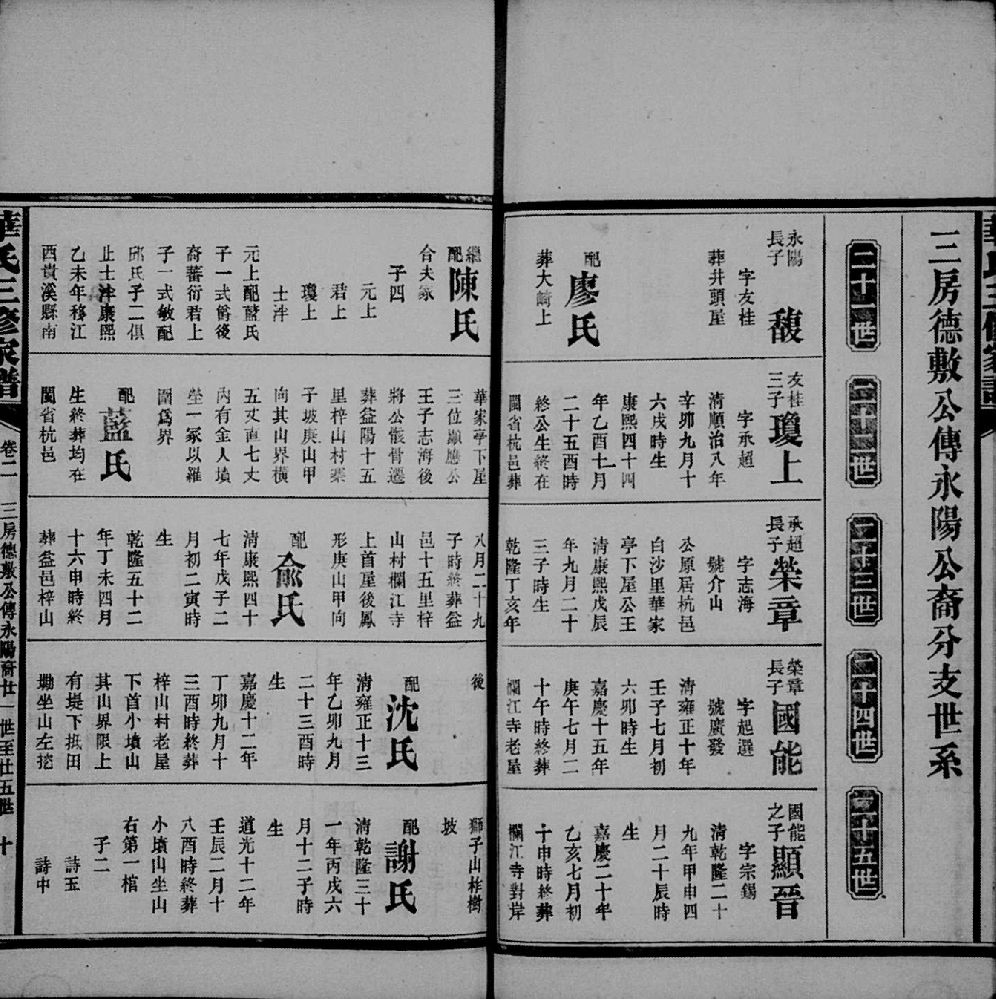 三房德敷公傳永陽公裔分支世系
二十一世
永陽
長子
馥
字友桂
葬井頭屋
配
廖氏
葬大崎上
繼
配
陳氏
合夫冢
子四
元上
君上
瓊上
士泮
元上配藍氏
子一式爵後
裔蕃衍君上
子一式敏配
邱氏子二俱
止士泮康熙
乙未年移江
西貴溪縣南
二十二世
友桂
三子
瓊上
字承超
清順治八年
辛卯九月十
六戌時生
康熙四十四
年乙酉十一月
二十五酉時
終公生終在
閩省杭邑葬
華家亭下屋
三位顯應公
壬子志海後
將公骸骨遷
葬益陽十五
里梓山村棗
子坡庚山甲
向其山界橫
五丈直七丈
內有金人墳
塋一冢以羅
圍爲界
配
藍氏
生終葬均在
閩省杭邑
二十三世
承超
長子
榮章
字志海
號介山
公原居杭邑
白沙里華家
亭下屋公王
清康熙戊辰
年九月二十
三子時生
乾隆丁亥年
八月二十九
子時終葬益
邑十五里梓
山村欄江寺
上首屋後鳳
形庚山甲向
配
俞氏
清康熙四十
七年戊子二
月初二寅時
生
乾隆五十二
年丁未四月
十六申時終
葬益邑梓山
二十四世
榮章
長子
國能
字起選
號廣發
清雍正十年
壬子七月初
六卯時生
嘉慶十五年
庚午七月二
十午時終葬
欄江寺老屋
後
配
沈氏
清雍正十三
年乙卯九月
二十三酉時
生
嘉慶十二年
丁卯九月十
三酉時終葬
梓山村老屋
下首小墳山
其山界限上
有堤下抵田
塝坐山左挖
二十五世
國能
之子
顯晉
字宗錫
清乾隆二十
九年甲申四
月二十辰時
生
嘉慶二十年
乙亥七月初
十申時終葬
欄江寺對岸
獅子山柞樹
坡
配
謝氏
清乾隆三十
一年丙戌六
月十二子時
生
道光十二年
壬辰二月十
八酉時終葬
小墳山坐山
右第一棺
子二
詩玉
詩中
華氏三修家譜
卷二
三房德敷公傳永陽裔廿一世至廿五世
十